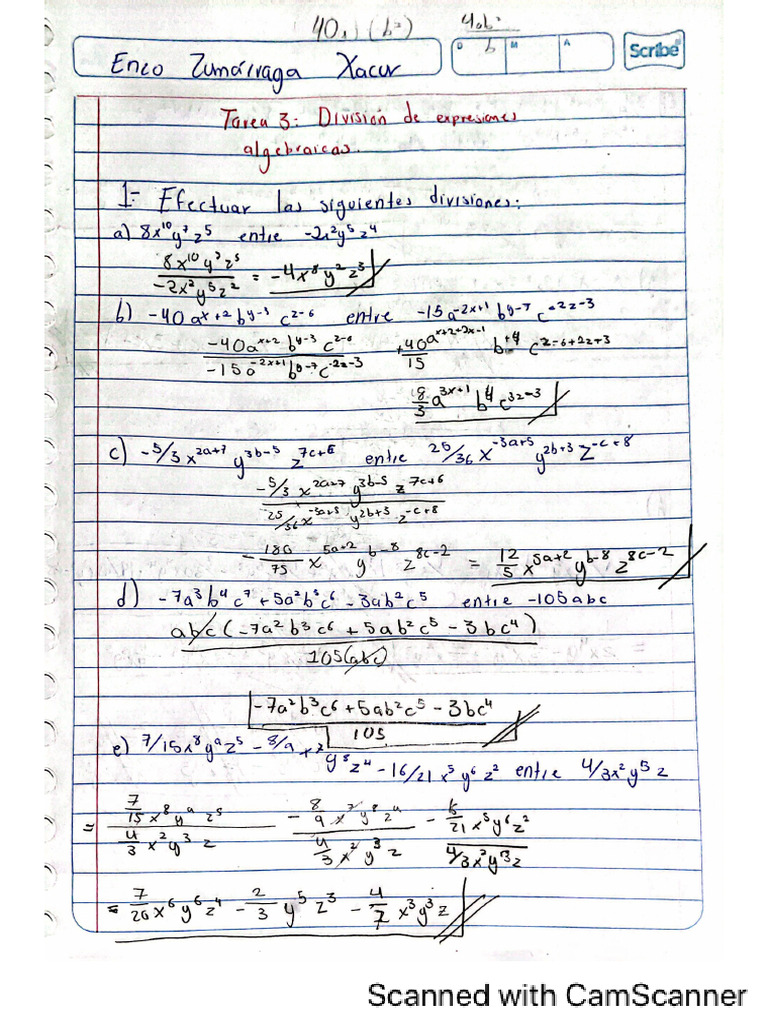 40 ) (b²) 4ab²
b
Enzo Zumárraga Xacur
D M A
Scribe
Tarea 3: División de expresiones
algebraicas.
1- Efectuar las siguientes divisiones:
a) 8x¹⁰y⁷z⁵ entre -2x²y⁵z⁴
8x¹⁰y⁷z⁵ / -2x²y⁵z² = -4x⁸y²z³
b) -40a^x+2 b^y-3 c^z-6 entre -15a^-2x+1 b^y-7 c^-2z-3
-40a^x+2 b^y-3 c^z-6 / -15a^-2x+1 b^y-7 c^-2z-3 +40a^x+2+2x-1 / 15 b^+4 c^z-6+2z+3
8/3 a^3x+1 b^4 c^3z-3
c) -5/3 x^2a+7 y^3b-5 z^7c+6 entre 25/36 x^-3a+5 y^2b+3 z^-c+8
-5/3 x^2a+7 y^3b-5 z^7c+6 / 25/36 x^-3a+5 y^2b+3 z^-c+8
-180/75 x^5a+2 y^b-8 z^8c-2 = 12/5 x^5a+2 y^b-8 z^8c-2
d) -7a³b⁴c⁷ + 5a²b³c⁶ - 3ab²c⁵ entre -105abc
abc(-7a²b³c⁶ + 5ab²c⁵ - 3bc⁴) / 105(abc)
-7a²b³c⁶ + 5ab²c⁵ - 3bc⁴ / 105
e) 7/15x⁸y⁹z⁵ - 8/9 x² y⁸z⁴ - 16/21 x⁵y⁶z² entre 4/3x²y³z
= 7/15 x⁸y⁹z⁵ / 4/3 x²y³z - 8/9 x²y⁸z⁴ / 4/3 x²y³z - /21 x⁵y⁶z² / 4/3x²y³z
= 7/20 x⁶y⁶z⁴ - 2/3 y⁵z³ - 4/7 x³y³z
Scanned with CamScanner